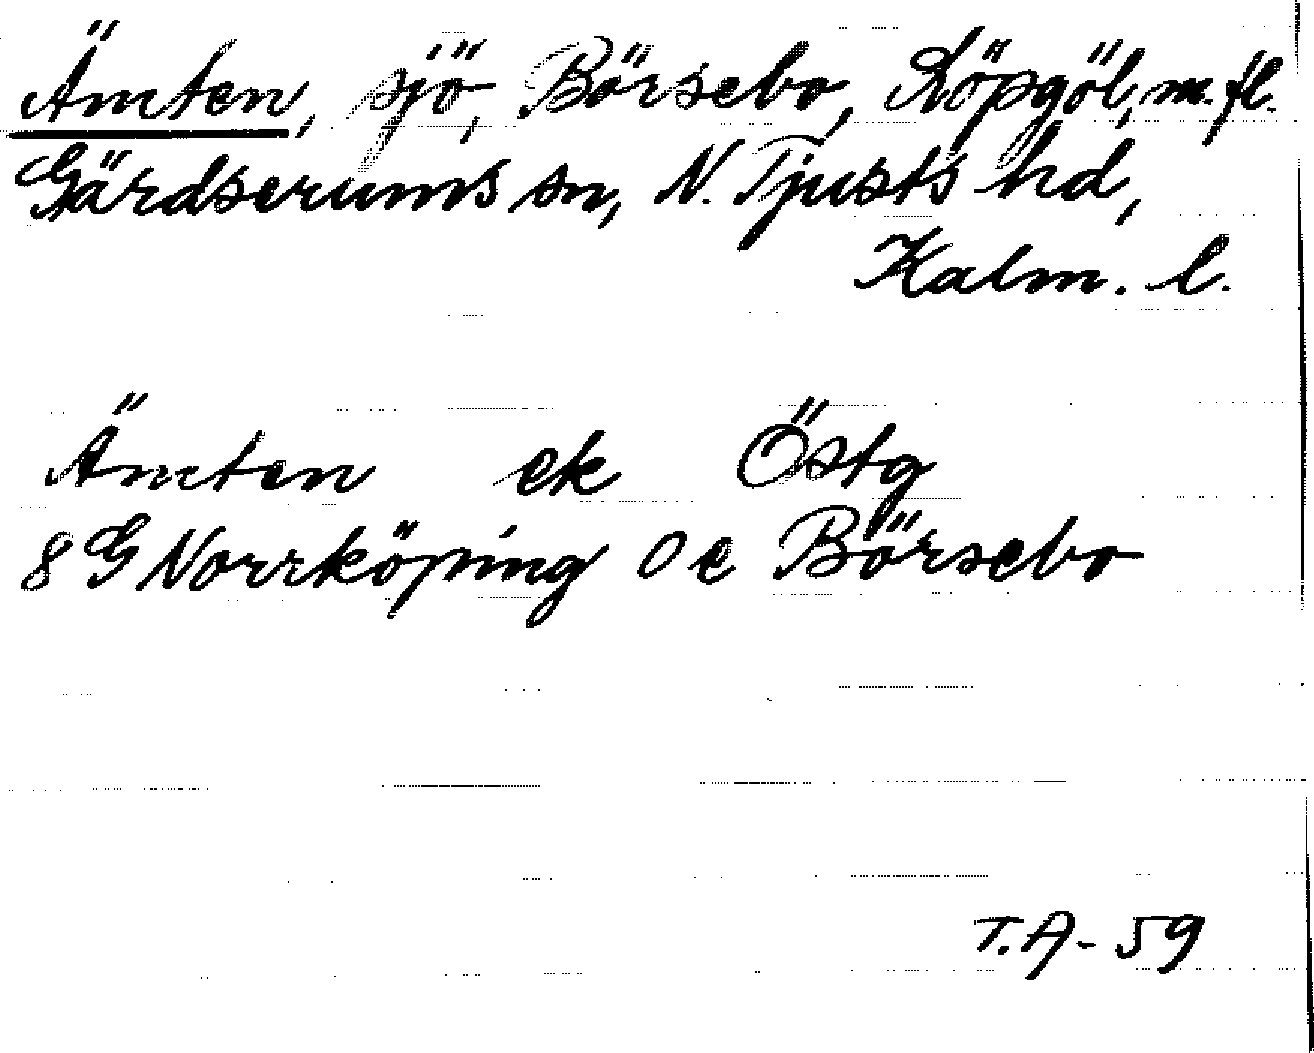 Ämten, sjö, Börsebo, Köpgöl, m. fl.
Gärdserums sn, N. Tjusts hd,
Kalm. l.
Ämten ek Östg
8 G Norrköping 0 e Börsebo
T.A-59